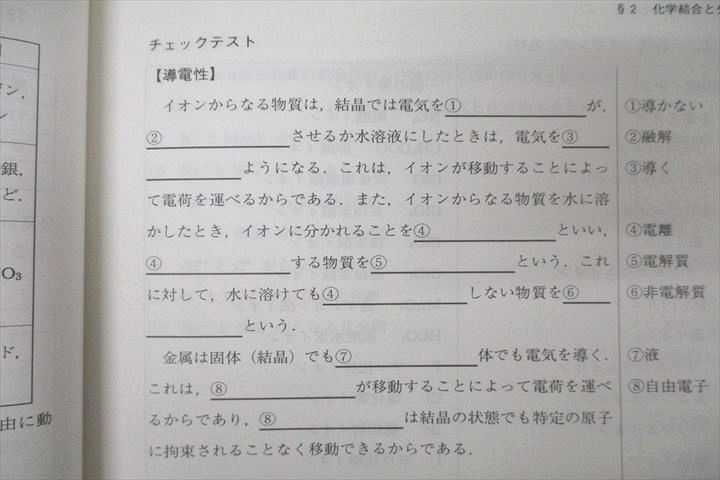 §2 化学結合と
チェックテスト
【導電性】
イオンからなる物質は，結晶では電気を① が，
② させるか水溶液にしたときは，電気を③
ようになる．これは，イオンが移動することによっ
て電荷を運べるからである．また，イオンからなる物質を水に溶
かしたとき，イオンに分かれることを④ といい，
④ する物質を⑤ という．これ
に対して，水に溶けても④ しない物質を⑥
という．
金属は固体（結晶）でも⑦ 体でも電気を導く．
これは，⑧ が移動することによって電荷を運べ
るからであり，⑧ は結晶の状態でも特定の原子
に拘束されることなく移動できるからである．
①導かない
②融解
③導く
④電離
⑤電解質
⑥非電解質
⑦液
⑧自由電子
銀，
ど．
O₃
ド，
由に動